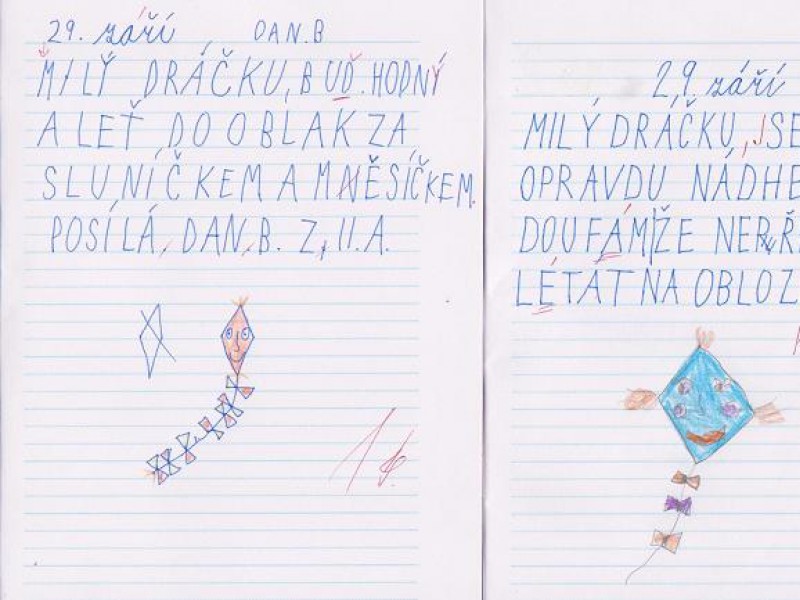 29. září DAN.B
MILÝ DRÁČKU, BUĎ HODNÝ
A LEŤ DO OBLAK ZA
SLUNÍČKEM A MĚSÍČKEM.
POSÍLÁ DAN.B. Z II.A.
29. září
MILÝ DRÁČKU, JSE
OPRAVDU NÁDHE
DOUFÁM ŽE
LÉTÁT NA OBLOZ